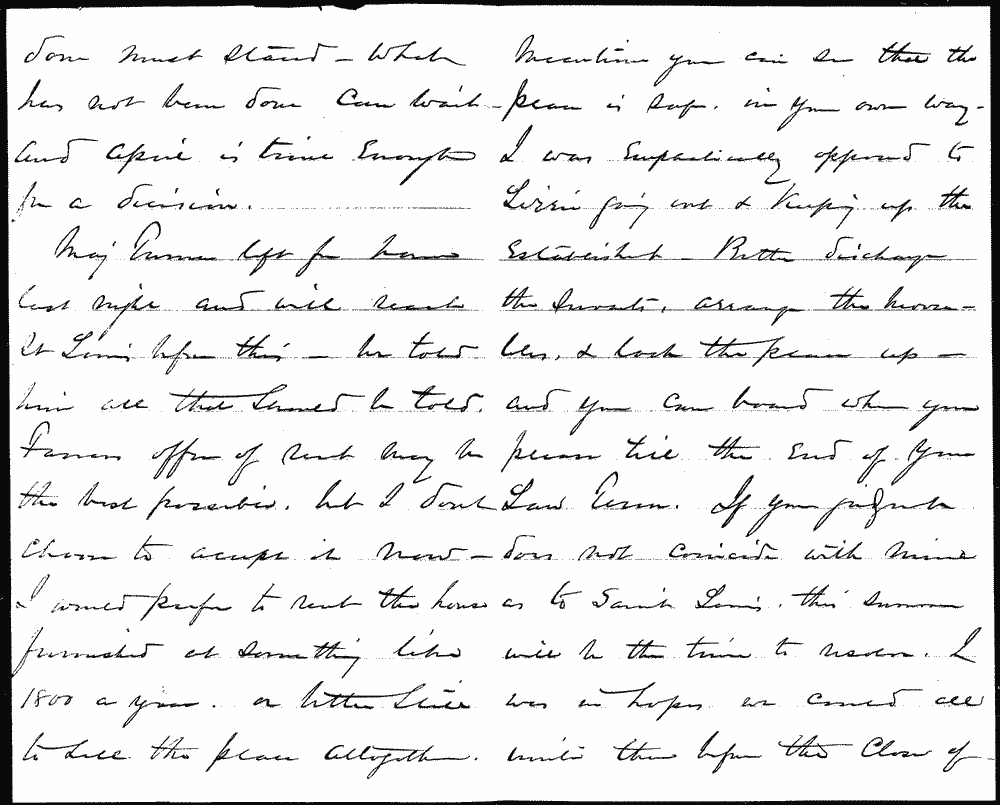 done must stand - What
has not been done can wait -
and April is time Enough
for a decision.
Maj Turner left for home
last night and will reach
St Louis before this - he told
him all that Seemed to be told.
offer of rent may be
the best possible. but I dont
choose to accept it now -
I would prefer to rent the house
furnished at something like
1800 a year. or better Still
to Sell the place altogether.
Meantime you can see that the
place is safe. in your own way -
I was Emphatically opposed to
Lizzie going out & Keeping up the
Establishmt - Better discharge
the Servants, arrange the mova-
bles, & lock the place up -
and you can board where you
please till the End of your
Law Term. If your judgmt
does not coincide with mine
as to Saint Louis. this summer
will be the time to resolve. I
was in hopes we could all
unite there before the Close of